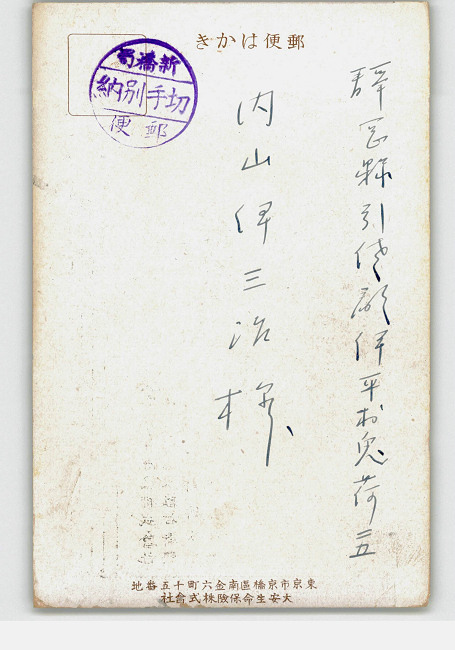 郵便はかき
新橋局
切手別納
郵便
静岡縣引佐郡伊平村兎荷三五
内山伊三治様
東京市京橋區南金六町十五番地
大安生命保險株式會社